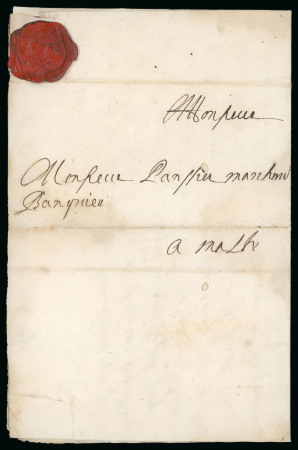 Monsieur
Monsieur Panssier marchand
Banquier
a malte